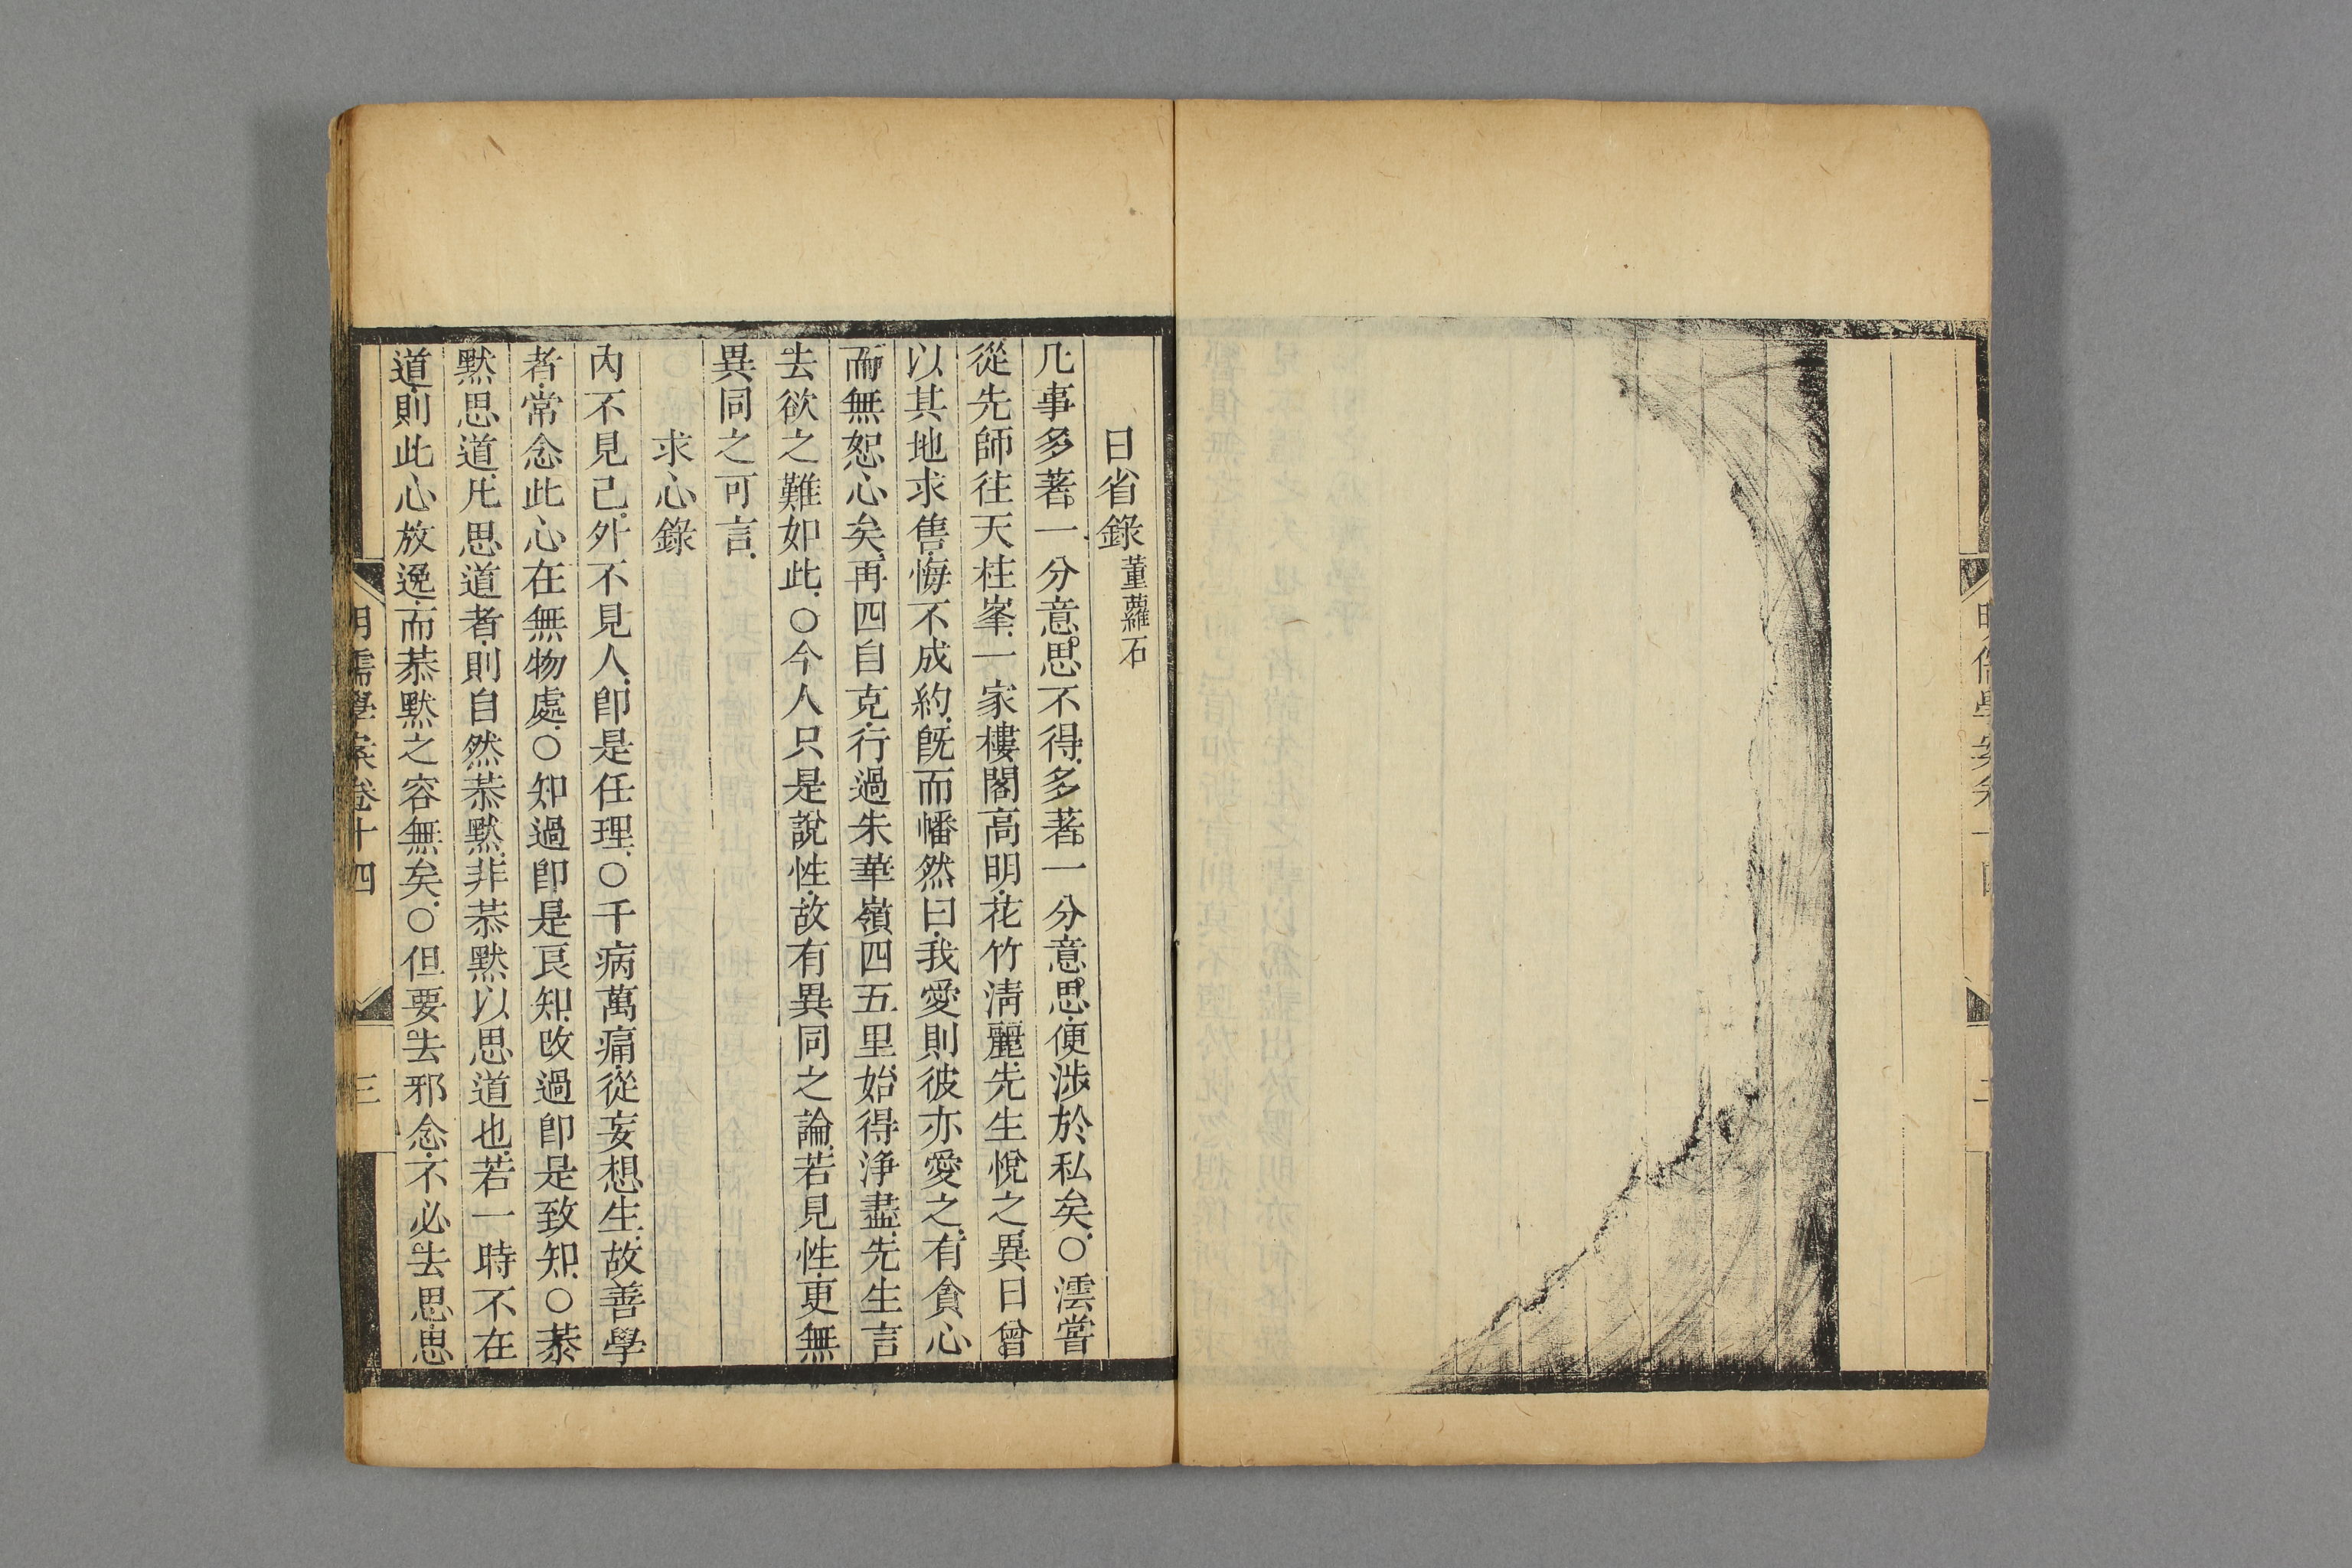 日省錄 董蘿石
凡事多著一分意思不得多著一分意思便涉於私矣○澐嘗
從先師往天柱峯一家樓閣高明花竹淸麗先生悅之異日曾
以其地求售悔不成約旣而幡然曰我愛則彼亦愛之有貪心
而無恕心矣再四自克行過朱華嶺四五里始得淨盡先生言
去欲之難如此○今人只是說性故有異同之論若見性更無
異同之可言
求心錄
內不見己外不見人卽是任理○千病萬痛從妄想生故善學
者常念此心在無物處○知過卽是良知改過卽是致知○恭
默思道凡思道者則自然恭默非恭默以思道也若一時不在
道則此心放逸而恭默之容無矣○但要去邪念不必去思思
明儒學案卷十四
三